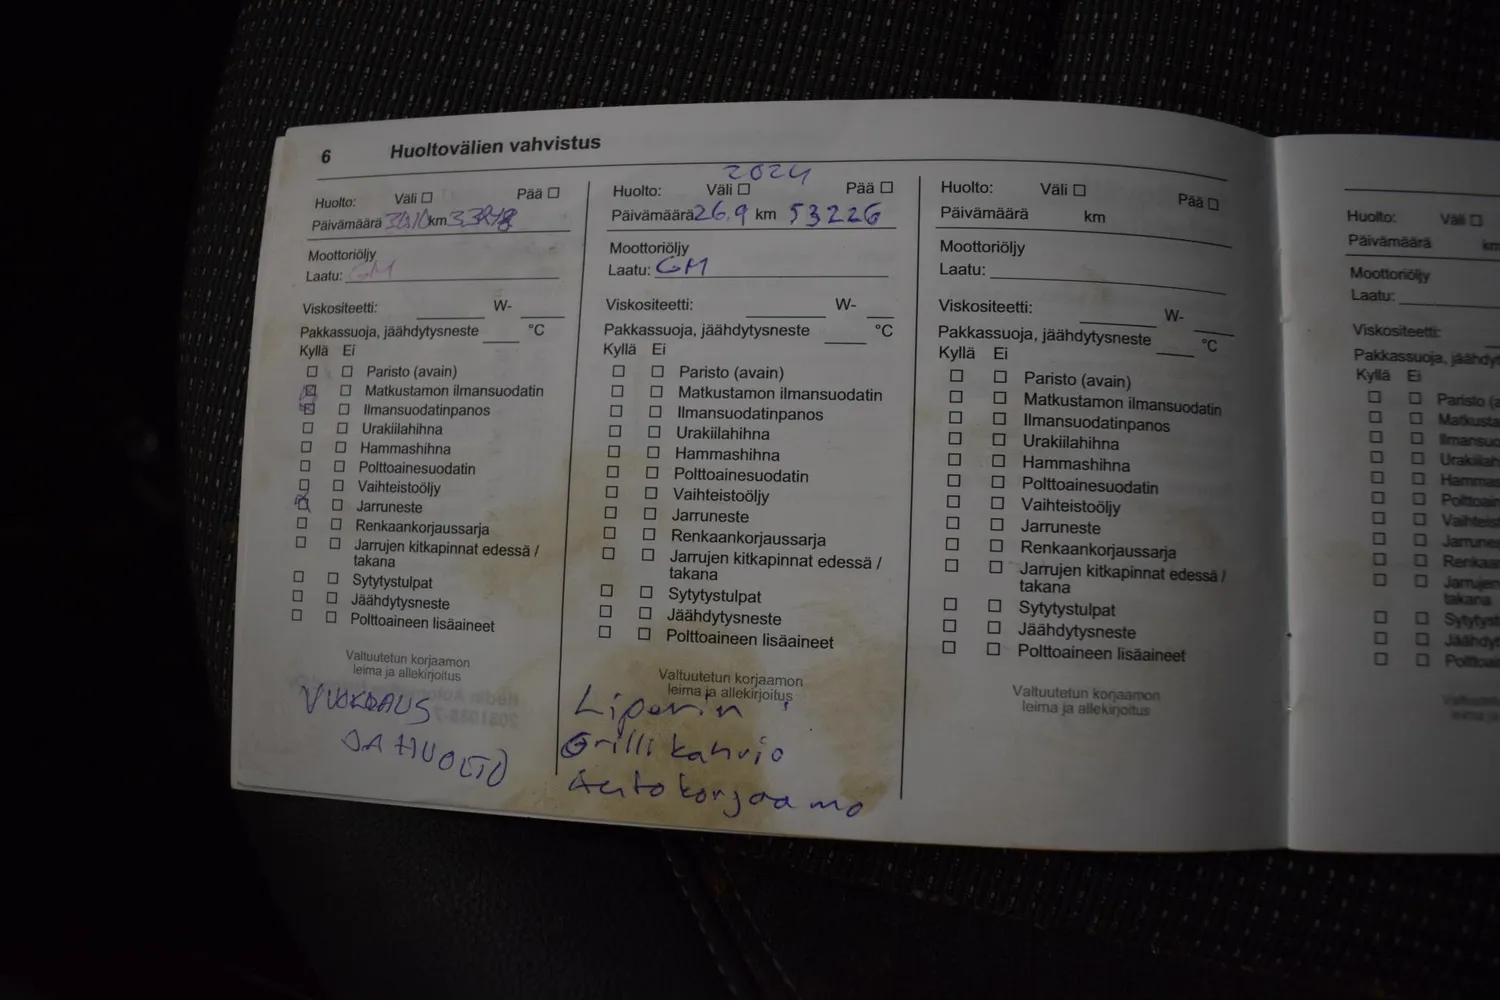 6 Huoltovälien vahvistus
Huolto: Väli Pää
Päivämäärä km
Moottoriöljy
Laatu: GM
Viskositeetti: W-
Pakkassuoja, jäähdytysneste °C
Kyllä Ei
Paristo (avain)
Matkustamon ilmansuodatin
Ilmansuodatinpanos
Urakiilahihna
Hammashihna
Polttoainesuodatin
Vaihteistoöljy
Jarruneste
Renkaankorjaussarja
Jarrujen kitkapinnat edessä /
takana
Sytytystulpat
Jäähdytysneste
Polttoaineen lisäaineet
Valtuutetun korjaamon
leima ja allekirjoitus
JA HUOLTO
2024
Huolto: Väli Pää
Päivämäärä 26.9 km 53226
Moottoriöljy
Laatu: GM
Viskositeetti: W-
Pakkassuoja, jäähdytysneste °C
Kyllä Ei
Paristo (avain)
Matkustamon ilmansuodatin
Ilmansuodatinpanos
Urakiilahihna
Hammashihna
Polttoainesuodatin
Vaihteistoöljy
Jarruneste
Renkaankorjaussarja
Jarrujen kitkapinnat edessä /
takana
Sytytystulpat
Jäähdytysneste
Polttoaineen lisäaineet
Valtuutetun korjaamon
leima ja allekirjoitus
Liperin
Grilli kahvio
Autokorjaamo
Huolto: Väli Pää
Päivämäärä km
Moottoriöljy
Laatu:
Viskositeetti: W-
Pakkassuoja, jäähdytysneste °C
Kyllä Ei
Paristo (avain)
Matkustamon ilmansuodatin
Ilmansuodatinpanos
Urakiilahihna
Hammashihna
Polttoainesuodatin
Vaihteistoöljy
Jarruneste
Renkaankorjaussarja
Jarrujen kitkapinnat edessä /
takana
Sytytystulpat
Jäähdytysneste
Polttoaineen lisäaineet
Valtuutetun korjaamon
leima ja allekirjoitus
Huolto: Väli
Päivämäärä km
Moottoriöljy
Laatu:
Viskositeetti:
Pakkassuoja,
Kyllä Ei
Paristo
Jarrujen
takana